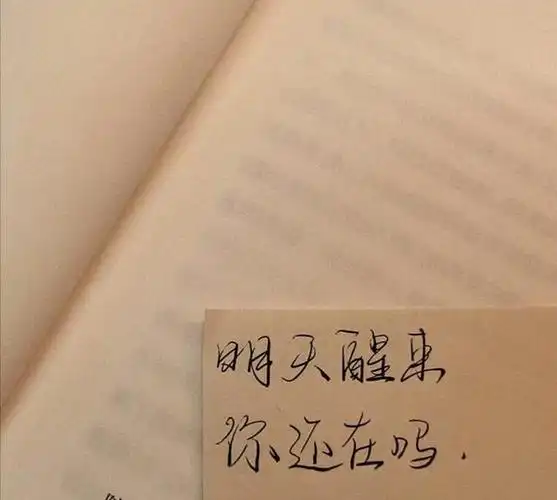 明天醒来
你还在吗.